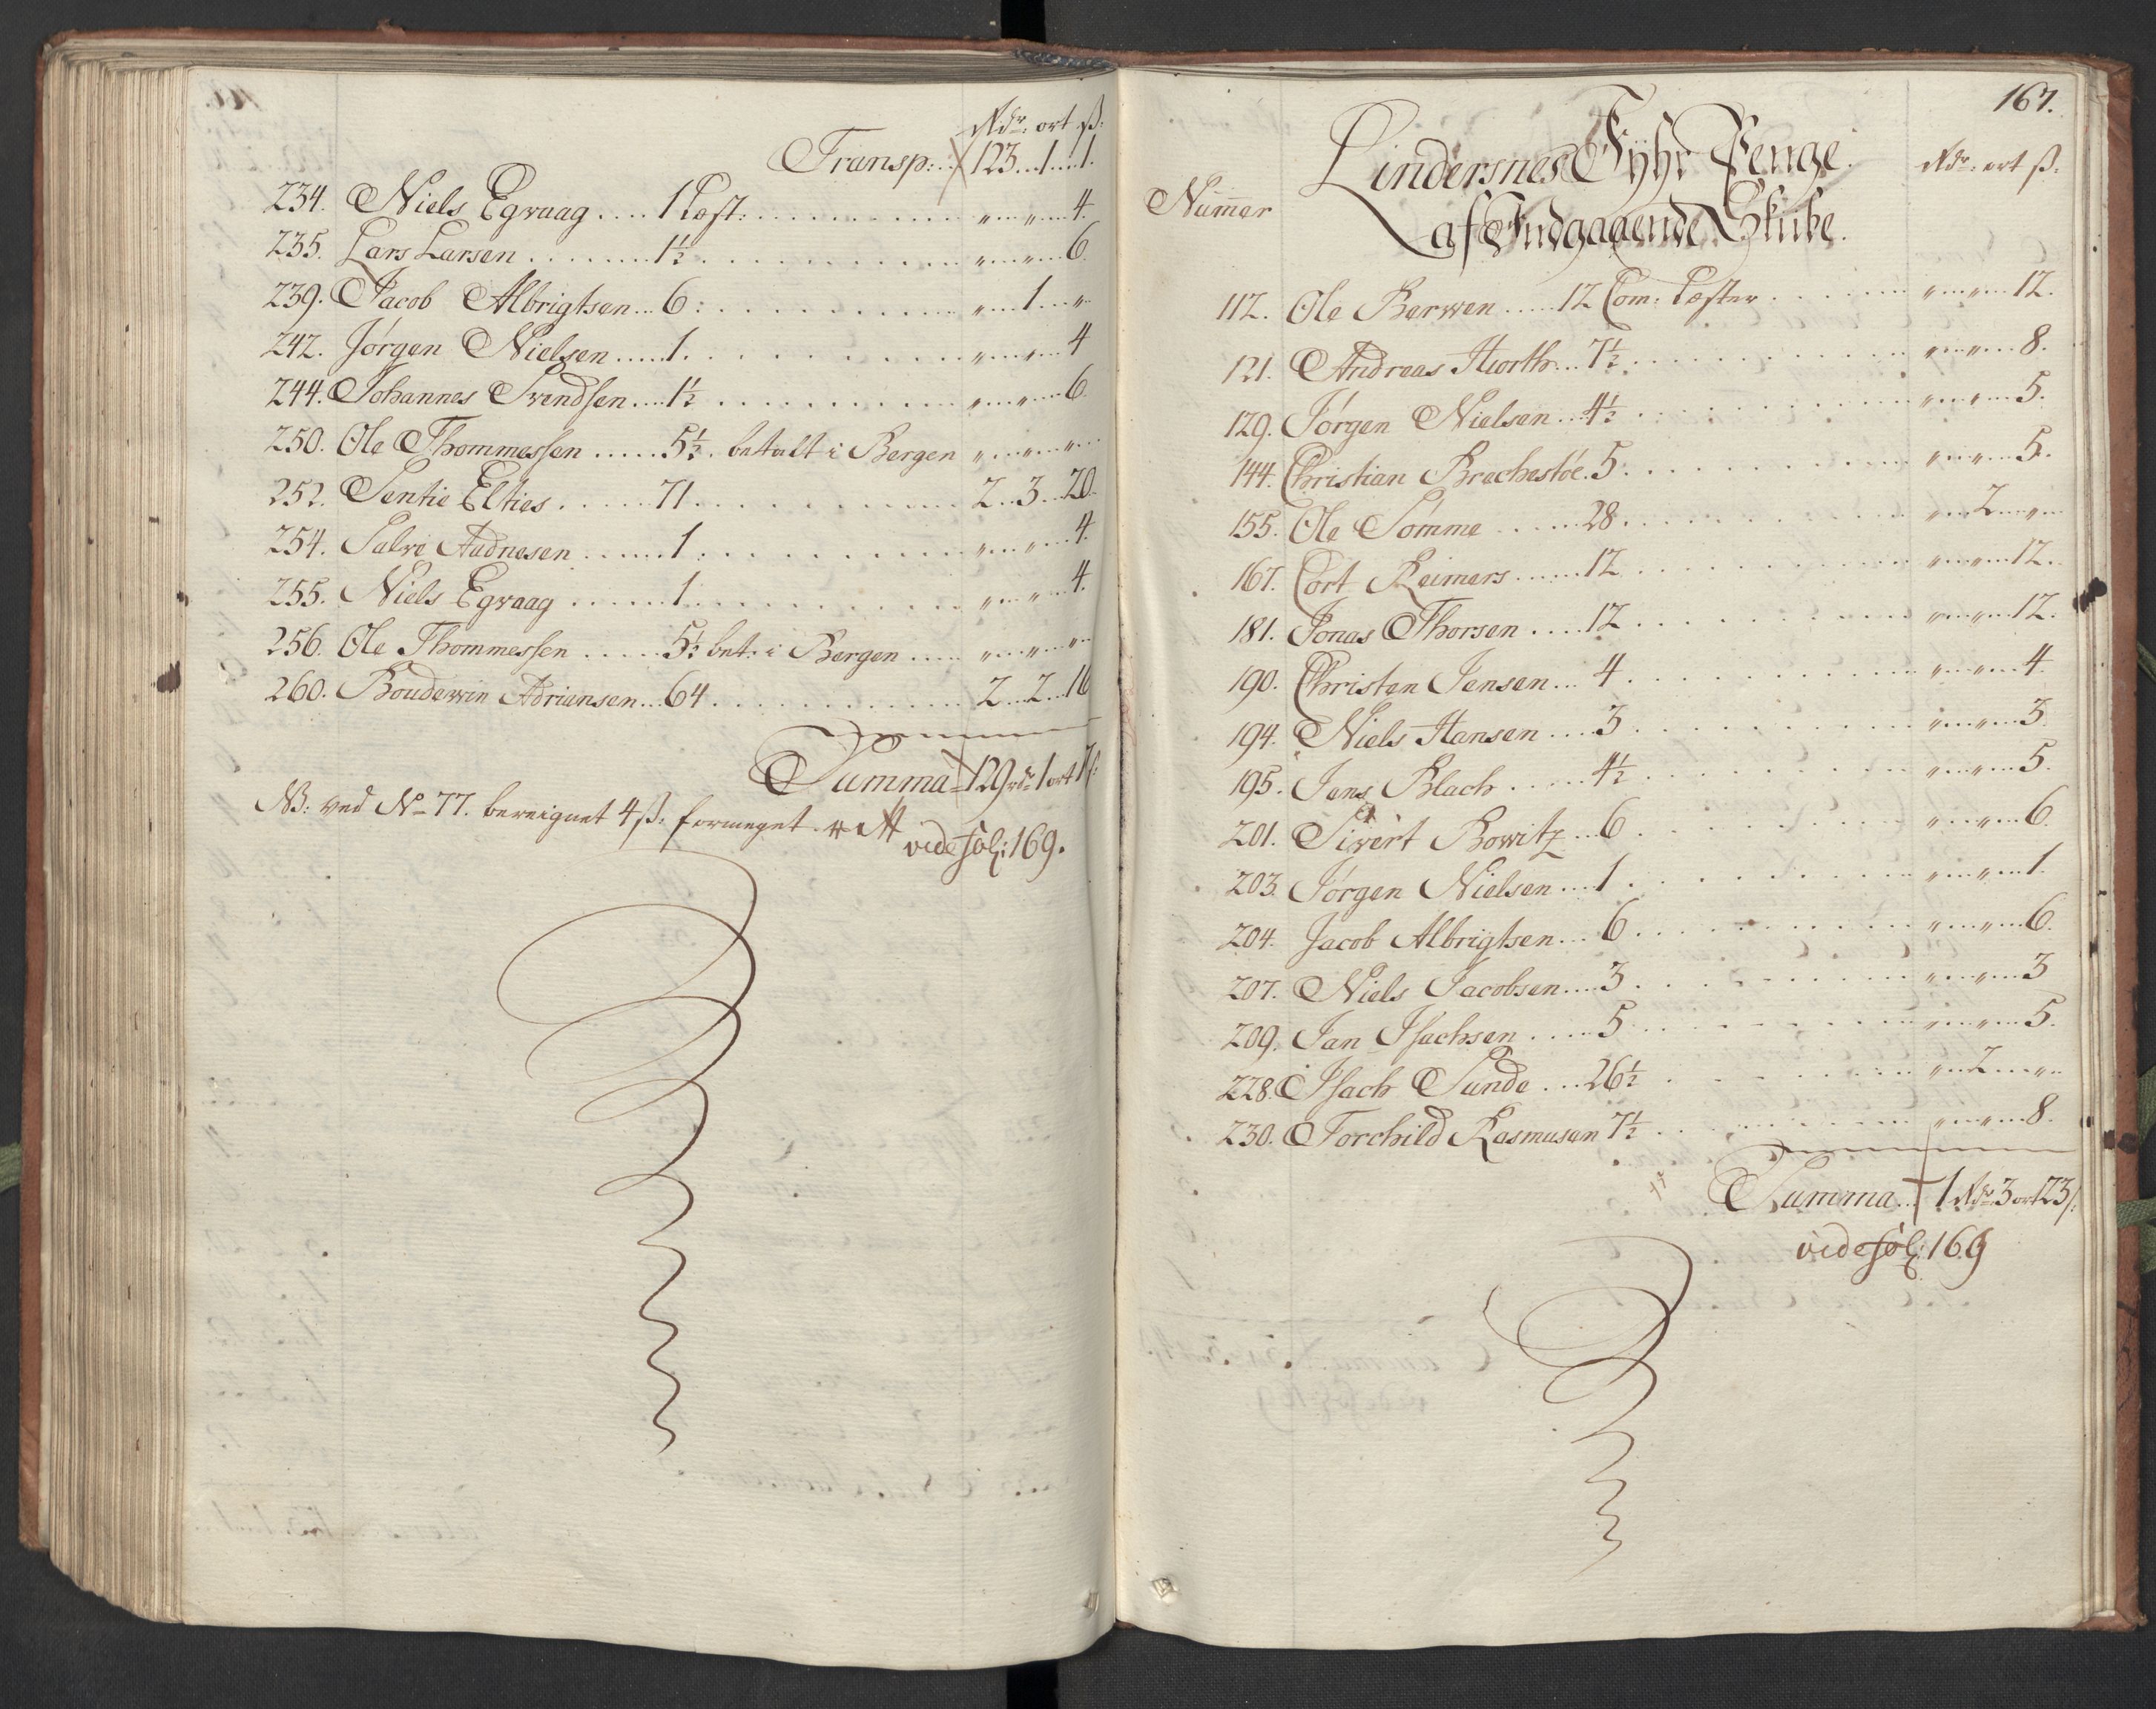 Rdr: ort ß:
Transp: 123 .. 1 .. 1.
234. Niels Egvaag .... 1 Læst: .......... " .. " .. 4.
235. Lars Larsen ....... 1½ .......... " .. " .. 6.
239. Jacob Albrigtsen ... 6: .......... " .. 1 .. "
242. Jørgen Nielsen ..... 1. .......... " .. " .. 4
244. Johannes Svendsen ... 1½ .......... " .. " .. 6.
250. Ole Thommessen ..... 5½. betalt i Bergen " .. " .. "
252. Sentie Elties ...... 71. .......... 2 .. 3 .. 20.
254. Salve Aadnesen ...... 1. .......... " .. " .. 4.
255. Niels Egvaag ...... 1. .......... " .. " .. 4.
256. Ole Thommessen ..... 5½ bet: i Bergen .... " .. " .. "
260. Boudewin Adriansen ... 64. .......... 2 .. 2 .. 16
Summa 129 rdr 1 ort
NB: ved No 77. bereignet 4 ß: formeget.
vide fol: 169.
167.
Lindersnes Fyhr Penge
Rdr: ort ß:
Nummer
af Indgaaende Skibe.
112. Ole Berwen ..... 12 Com: Læster ...... " .. " .. 12.
121. Andreas Hiorth ... 7½. .......... " .. " .. 8.
129. Jørgen Nielsen ... 4½ .......... " .. " .. 5.
144. Christian Brechestøe. 5. .......... " .. " .. 5.
155. Ole Sømme ..... 28. .......... " .. 2 .. "
167. Cort Reimers ..... 12 .......... " .. " .. 12.
181. Jonas Thorsen .... 12 .......... " .. " .. 12.
190. Christen Jensen ... 4. .......... " .. " .. 4.
194. Niels Hansen .... 3 .......... " .. " .. 3.
195. Jens Blach ..... 4½ .......... " .. " .. 5.
201. Sivert Bowitz ... 6. .......... " .. " .. 6.
203. Jørgen Nielsen .... 1. .......... " .. " .. 1.
204. Jacob Albrigtsen ... 6. .......... " .. " .. 6.
207. Niels Jacobsen .... 3. .......... " .. " .. 3
209. Jan Isachsen ..... 5 .......... " .. " .. 5.
228. Isach Sunde ... 26½ .......... " .. 2 .. "
230. Torchild Rasmusen 7½ .......... " .. " .. 8.
Summa .. 1 Rdr 3 ort 23 ß:
vide fol: 169